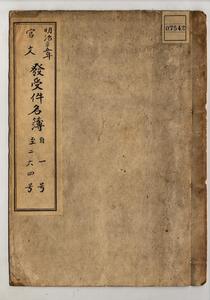 明治三五年
官文 發受件名簿 自一号
至二六四号
07542